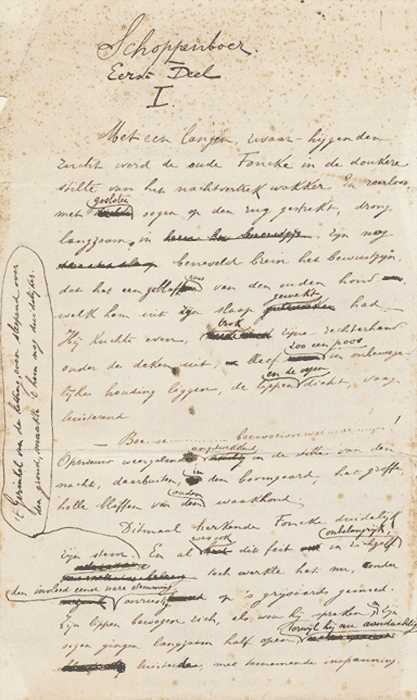 Schoppenboer.
Eerste Deel
I.
Met een langen, zwaar-hijgenden
zucht werd de oude Foncke in de donkere
stilte van het nachtvertrek wakker. En roerloos
gesloten
met oogen op den rug gestrekt, drong
langzaam in zijn nog
beneveld brein het bewustzijn,
dat het een geblaf was van den ouden hond
gewekt
welk hem uit zijn slaap had
trok
Hij kuchte even, zijne rechterhand
zoo een poos
onder de deken uit, bleef in onbewege-
en de ogen
lijke houding liggen, de lippen dicht, vaag
luisterend
Boe-oe
Opnieuw weergalmde in de stilte van den
in
nacht, daarbuiten, den boomgaard, het groffe,
ouden
holle blaffen van den waakhond.
Ditmaal herkende Foncke duidelijk
onbelangrijk
zijn stem. En al was ook dit feit in zichzelf
toch werkte het nu, onder
den invloed eener vage stemming
onrust op 's grijsaards gemoed.
Zijn lippen bewogen zich, als wou hij spreken, Zijn
terwijl hij nu aandachtig
oogen gingen langzaam half open
luisterde, met toenemende inspanning.
't Gerinkel van de ketting, van slepend over
den grond, maakte 't hem nog duidelijker.